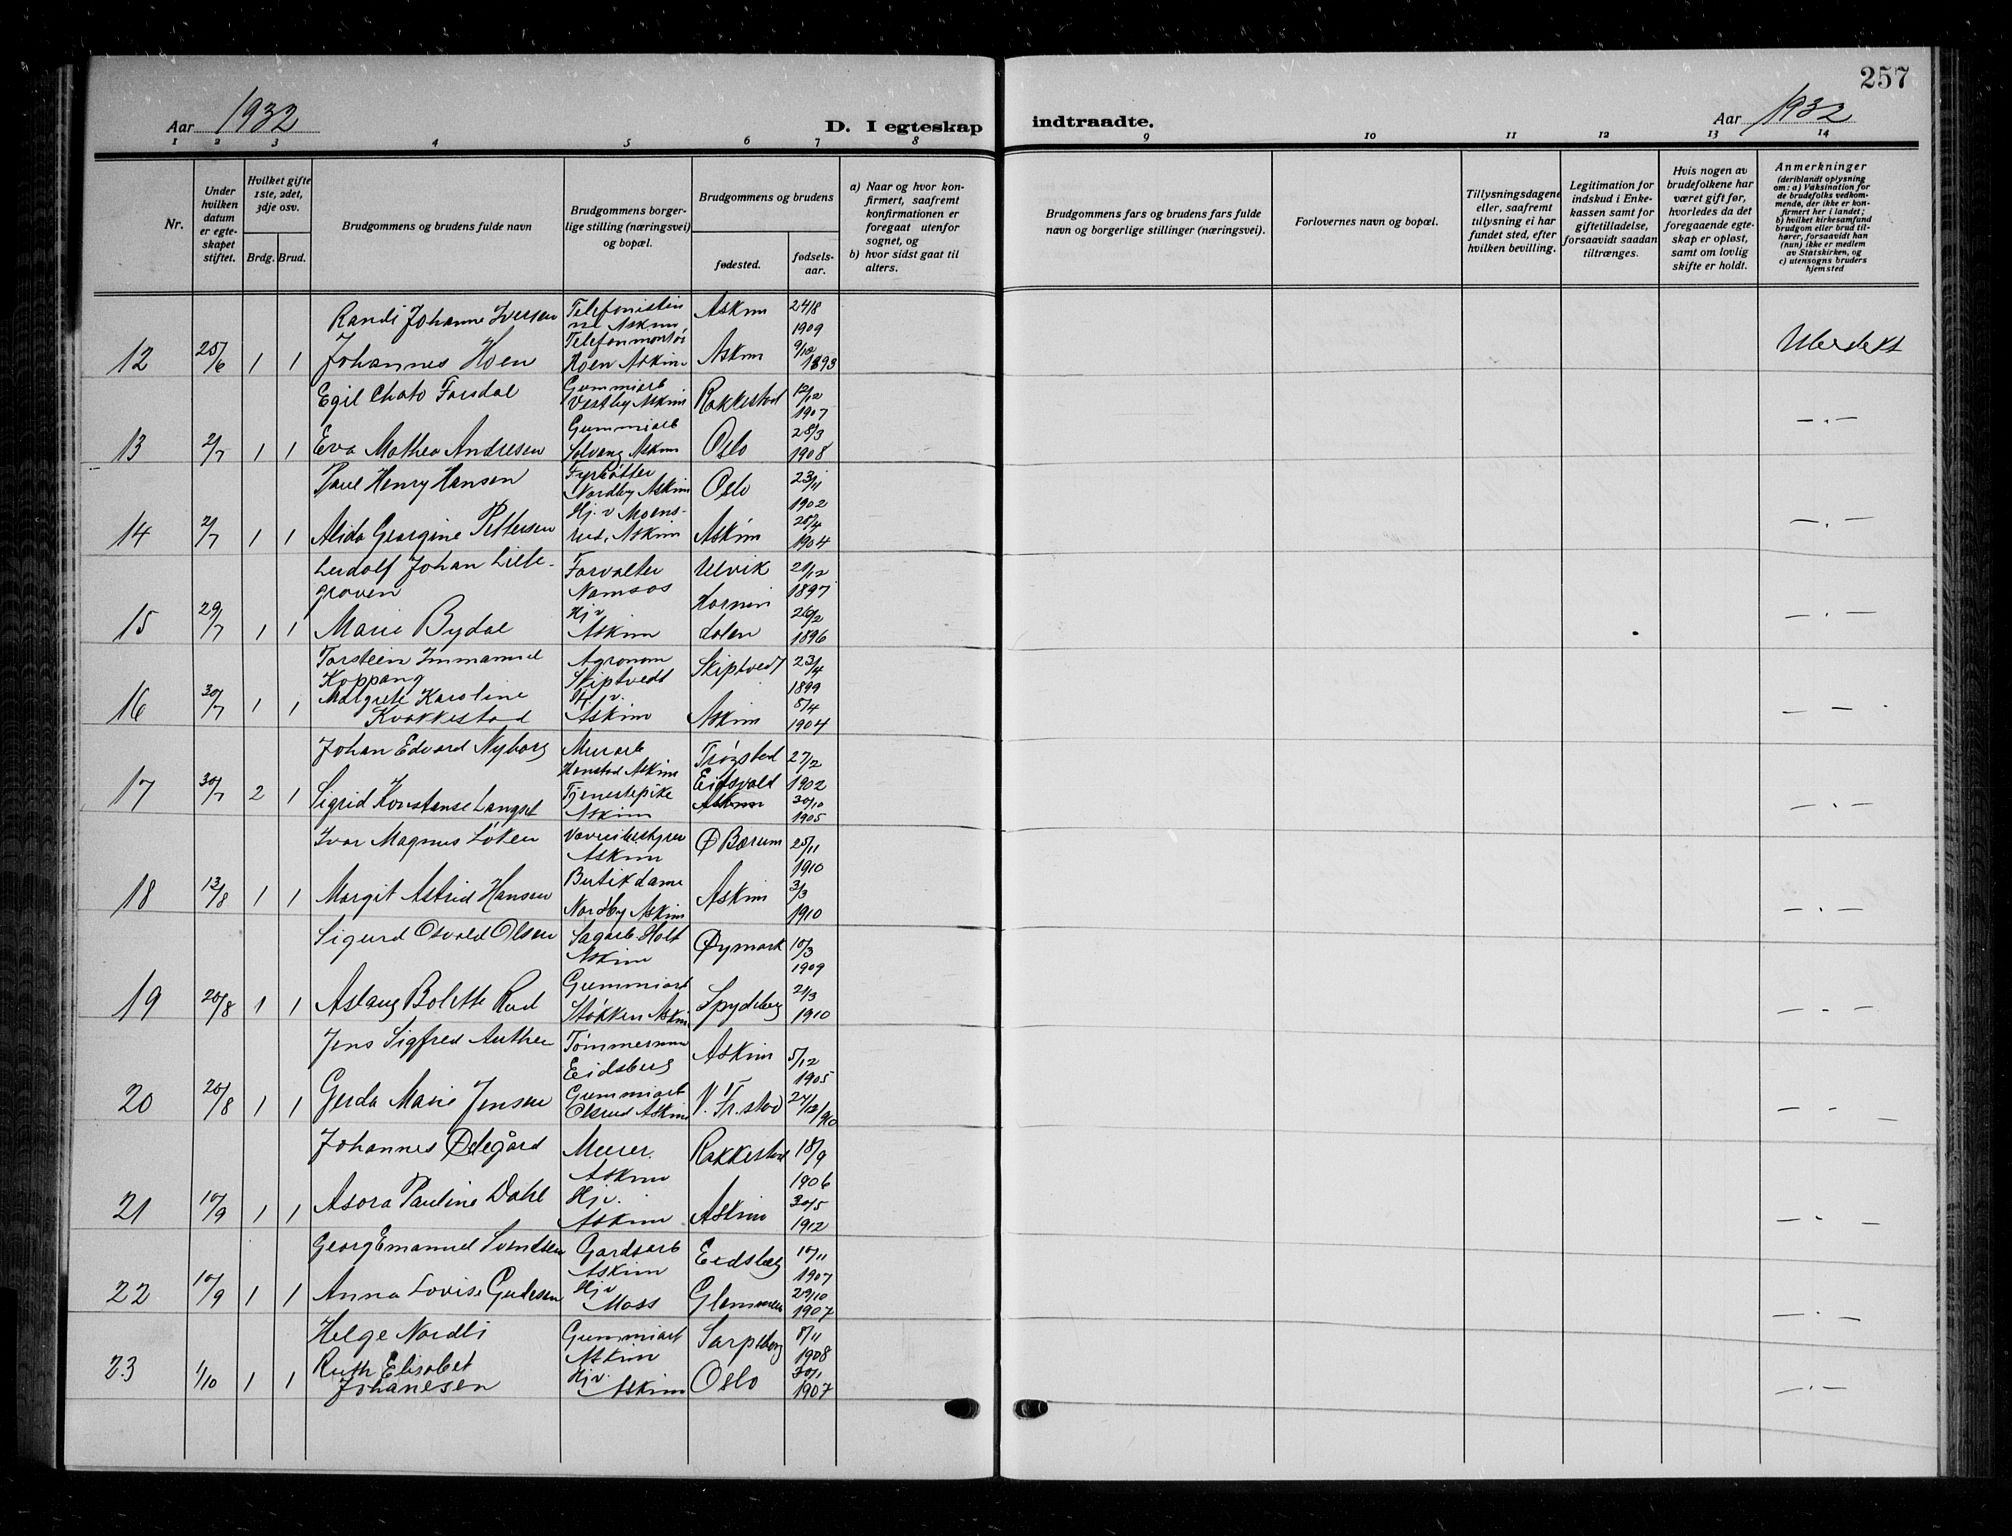 257
Aar 1932
D. I egteskap indtraadte.
Aar 1932
1 2 3 4 5 6 7 8 9 10 11 12 13 14
Nr.
Under hvilken datum er egteskapet stiftet.
Hvilket gifte 1ste, 2det, 3dje osv.
Brdg. Brud.
Brudgommens og brudens fulde navn
Brudgommens borgerlige stilling (næringsvei) og bopæl.
Brudgommens og brudens
fødested.
fødselsaar.
a) Naar og hvor konfirmert, saafremt konfirmationen er foregaat utenfor sognet, og
b) hvor sidst gaat til alters.
Brudgommens fars og brudens fars fulde navn og borgerlige stillinger (næringsvei).
Forlovernes navn og bopæl.
Tillysningsdagene eller, saafremt tillysning ei har fundet sted, efter hvilken bevilling.
Legitimation for indskud i Enkekassen samt for giftetilladelse, forsaavidt saadan tiltrænges.
Hvis nogen av brudefolkene har været gift før, hvorledes da det foregaaende egteskap er opløst, samt om lovlig skifte er holdt.
Anmerkninger
(deriblandt oplysning om: a) Vaksination for de brudefolks vedkommende, der ikke er konfirmert her i landet; b) hvilket kirkesamfund brudgom eller brud tilhører, forsaavidt han (hun) ikke er medlem av Statskirken, og c) utensogns bruders hjemsted
Randi Johanne Iversen Telefonistinne Askim Askim 24/8 1909
12 25/6 1 1 Johannes Hoen Telefonmontør Hoen Askim Askim 9/12 1893
Egil Chato Forsdal Gummiarb Vestby Askim Rakkestad 12/12 1907 —.—
13 2/7 1 1 Eva Mathea Andresen Gummiarb Solvang Askim Oslo 28/3 1908
Paul Henry Hansen Fyrbøtter Nordby Askim Oslo 23/11 1902 —.—
14 2/7 1 1 Alida Georgine Pettersen Hj. v Moensrud, Askim Askim 28/4 1904
Johan Forvalter Namsos Ulvik 21/12 1897
15 29/7 1 1 Marie Bydal Hj v Askim 26/2 1896 —.—
Torstein Immanuel Koppang Agronom Skiptvedt Skiptvedt 23/4 1899
16 30/7 1 1 Margrete Karoline Kvakkestad Hj. v. Askim Askim 8/4 1904 — — .
Johan Edvard Nyborg Murarb Hanstad Askim Trøgstad 27/2 1902
17 30/7 2 1 Sigrid Konstanse Langset Tjenestepike Askim Eidsvold Askim 30/10 1905 —.—
Ivar Magnus Løken Askim Ø Bærum 25/11 1910
18 13/8 1 1 Margit Astrid Hansen Butikdame Nordby Askim Askim 3/3 1910 —.—
Sigurd Osvald Olsen Sagarb Holt Askim Øymark 10/3 1909
19 20/8 1 1 Aslaug Bolette Rud Gummiarb Støkken Askim Spydeberg 21/3 1910 —.—
Jens Sigfred Tømmermann Eidsberg Askim 5/12 1905
20 20/8 1 1 Gerda Marie Jensen Gummiarb Olsrud Askim V. Fr.stad 27/12/1910 —.— —
Johannes Ødegård Murer. Askim Rakkestad 18/9 1906
21 10/9 1 1 Asora Pauline Dahl Hj v. Askim Askim 30/5 1912 —.—
Georg Emanuel Svendsen Gardsarb Askim Eidsberg 10/11 1907
22 10/9 1 1 Anna Lovise Gudesen Hj v Moss Glemmen 29/10 1907 —.—
Helge Nordli Gummiarb Askim Sarpsborg 8/11 1908
23 1/10 1 1 Ruth Elisabet Johanesen Hj v. Askim Oslo 30/1 1907 —.—